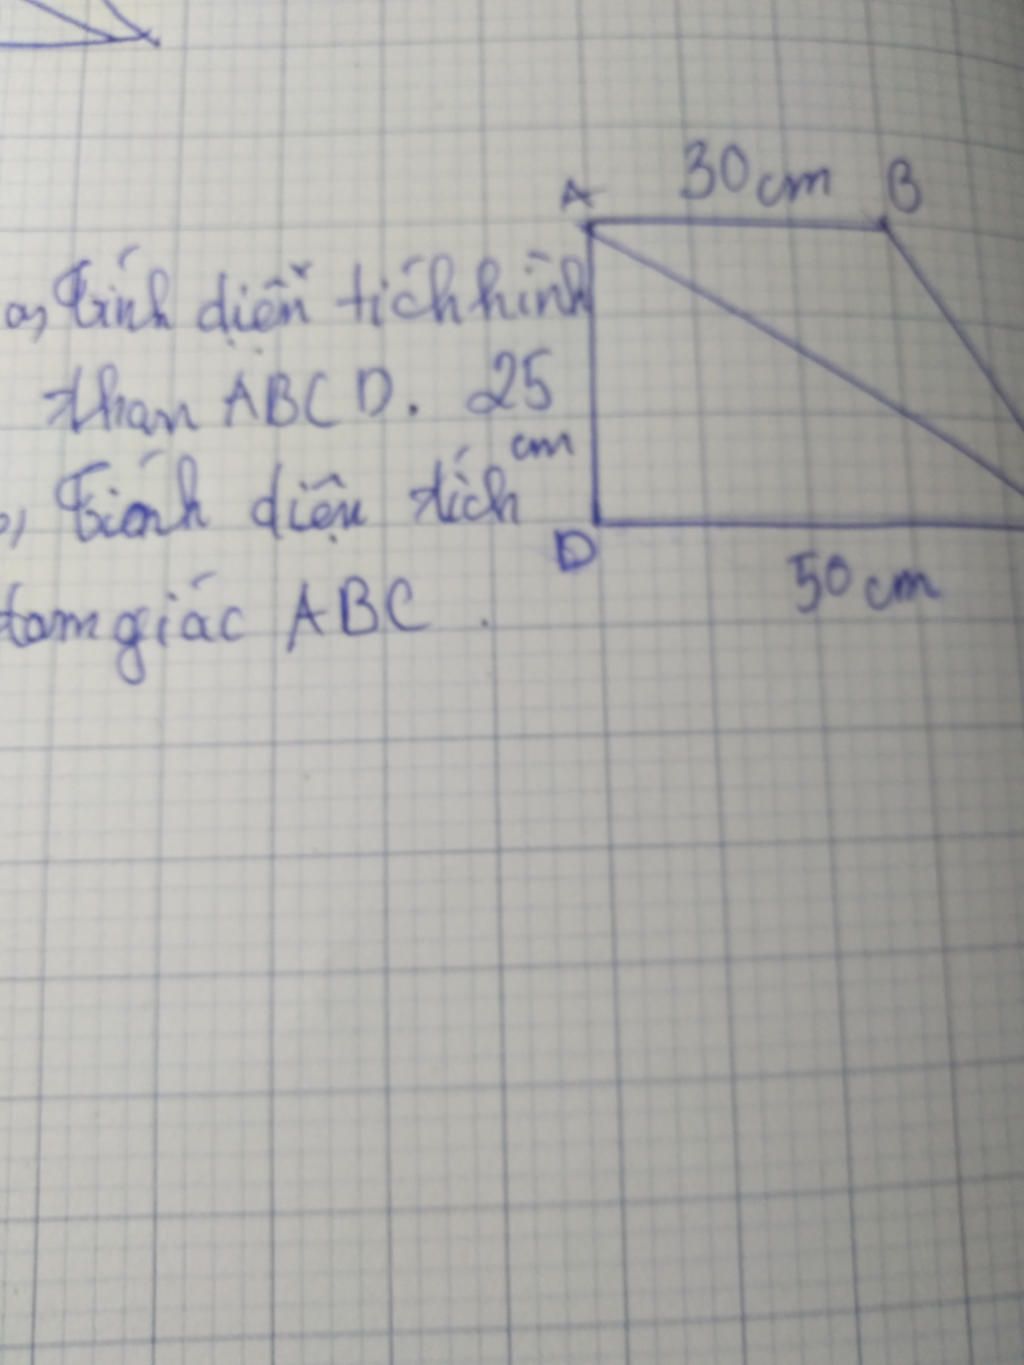 A 30cm B
a, Tính diện tích hình
than ABCD. 25
cm
Tính diện tích
D
50 cm
tam giác ABC.